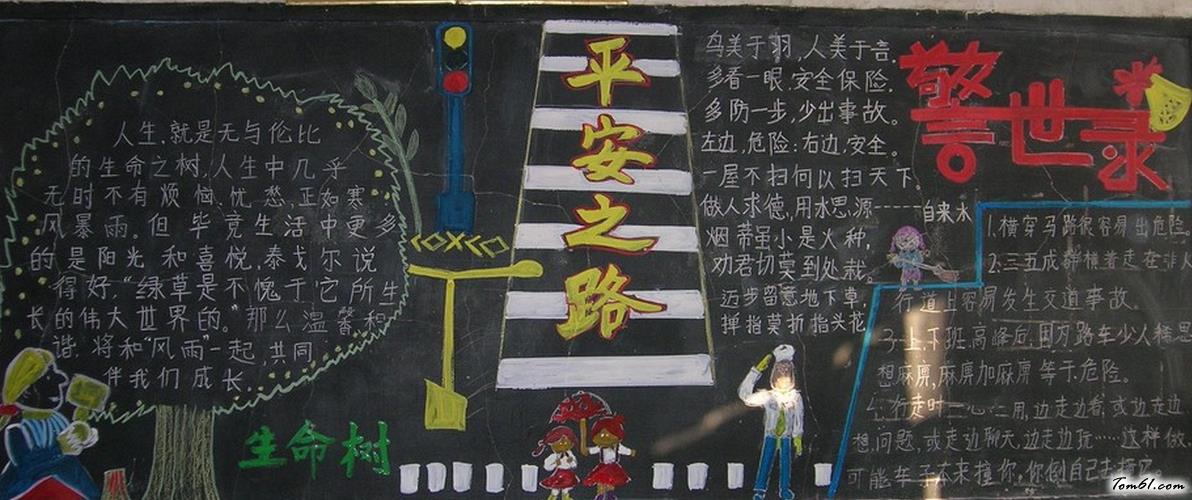 人生,就是无与伦比
的生命之树,人生中几乎
无时不有烦恼,忧愁,正如寒
风暴雨。但毕竟生活中更多
的是阳光和喜悦,泰戈尔说
得好,“绿草是不愧于它所生
长的伟大世界的。”那么温馨和
谐.将和“风雨”一起,共同
伴我们成长.
生命树
平安之路
鸟美于羽,人美于言.
多看一眼,安全保险.
多防一步,少出事故。
左边,危险:右边,安全。
一屋不扫何以扫天下。
做人求德,用水思源------自来水
烟蒂虽小是火种,
劝君切莫到处栽.
迈步留意地下草,
掸指莫折指头花
警世录
1.横穿马路很容易出危险。
2.三五成群横着走在非人
行道上容易发生交通事故。
3.上.下班.高峰后.因为路车少人稀思
想麻痹,麻痹加麻痹等于危险。
4.行走时一心二用,边走边看,或边走边
想问题,或走边聊天,边走边玩……这样做.
可能车子本来撞你,你倒自己去
Tom61.com